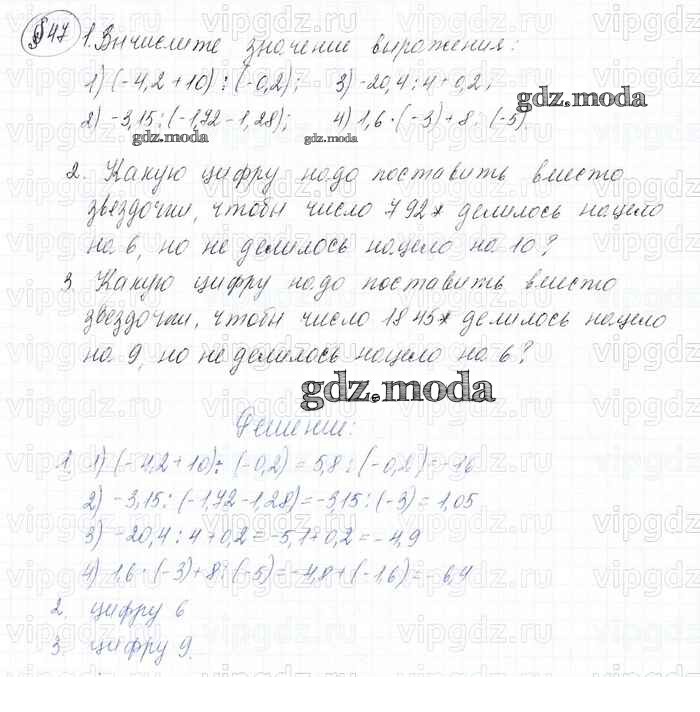 §47 1. Вычислите значение выражения:
1) (-4,2+10) : (-0,2); 3) -20,4 : 4 + 0,2;
gdz.moda
2) -3,15 : (-1,72 - 1,28); 4) 1,6 · (-3) + 8 : (-5)
gdz.moda gdz.moda
2. Какую цифру надо поставить вместо
звёздочки, чтобы число 792* делилось нацело
на 6, но не делилось нацело на 10?
3. Какую цифру надо поставить вместо
звёздочки, чтобы число 1845* делилось нацело
на 9, но не делилось нацело на 6?
gdz.moda
Решение:
1. 1) (-4,2+10) : (-0,2) = 5,8 : (-0,2) =
2) -3,15 : (-1,72 - 1,28) = -3,15 : (-3) = 1,05
3) -20,4 : 4 + 0,2 = -5,1 + 0,2 = -4,9
4) 1,6 · (-3) + 8 : (-5) = -4,8 + (-1,6) = -6,4
2. цифру 6
3. цифру 9.
vipgdz.ru